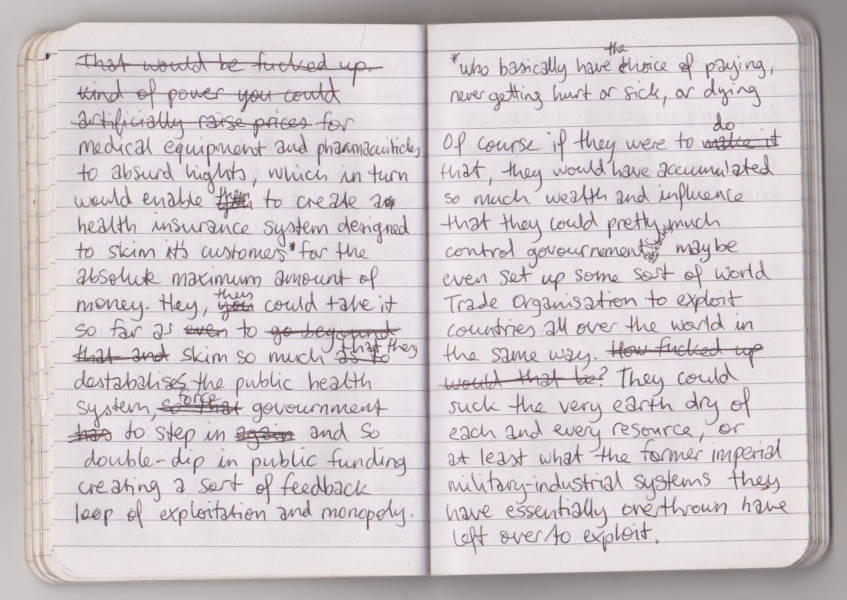 That would be fucked up.
kind of power you could
artificially raise prices for
medical equipment and pharmacuiticles
to absurd hights, which in turn
would enable them to create a
health insurance system designed
to skim it's customers* for the
absolute maximum amount of
they
money. Hey, you could take it
so far as even to go beyound
that they
that and skim so much as to
destabalises the public health
force
system, so that govournment
has to step in again and so
double-dip in public funding
creating a sort of feedback
loop of exploitation and monopoly.
the
*who basically have choice of paying,
never getting hurt or sick, or dying
do
Of course if they were to make it
that, they would have accumulated
so much wealth and influence
that they could pretty much
control govournement maybe
even set up some sort of world
Trade Organisation to exploit
countries all over the world in
the same way. How fucked up
would that be? They could
suck the very earth dry of
each and every resource, or
at least what the former imperial
military-industrial systems they
have essentially overthrown have
left over to exploit.